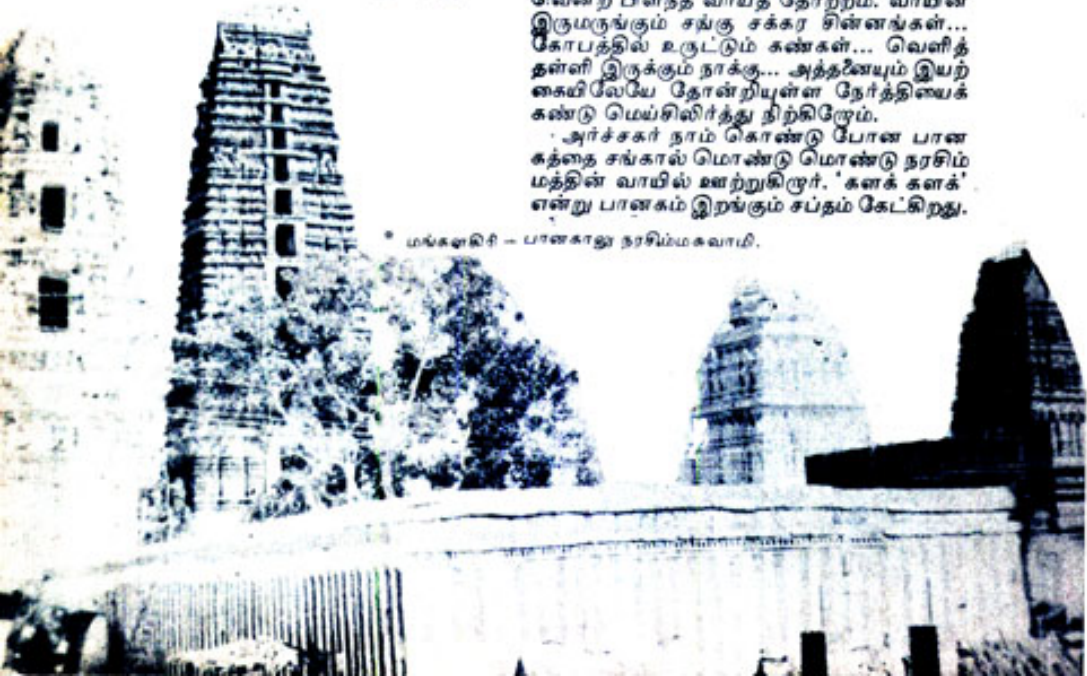 பிளந்த வாயத் தோற்றம். வாயின்
இருமருங்கும் சங்கு சக்கர சின்னங்கள்...
கோபத்தில் உருட்டும் கண்கள்... வெளித்
தள்ளி இருக்கும் நாக்கு... அத்தனையும் இயற்
கையிலேயே தோன்றியுள்ள நேர்த்தியைக்
கண்டு மெய்சிலிர்த்து நிற்கிறோம்.
அர்ச்சகர் நாம் கொண்டு போன பான
கத்தை சங்கால் மொண்டு மொண்டு நரசிம்
மத்தின் வாயில் ஊற்றுகிறார். 'களக் களக்'
என்று பானகம் இறங்கும் சப்தம் கேட்கிறது.
மங்களகிரி – பானகாலு நரசிம்மசுவாமி.